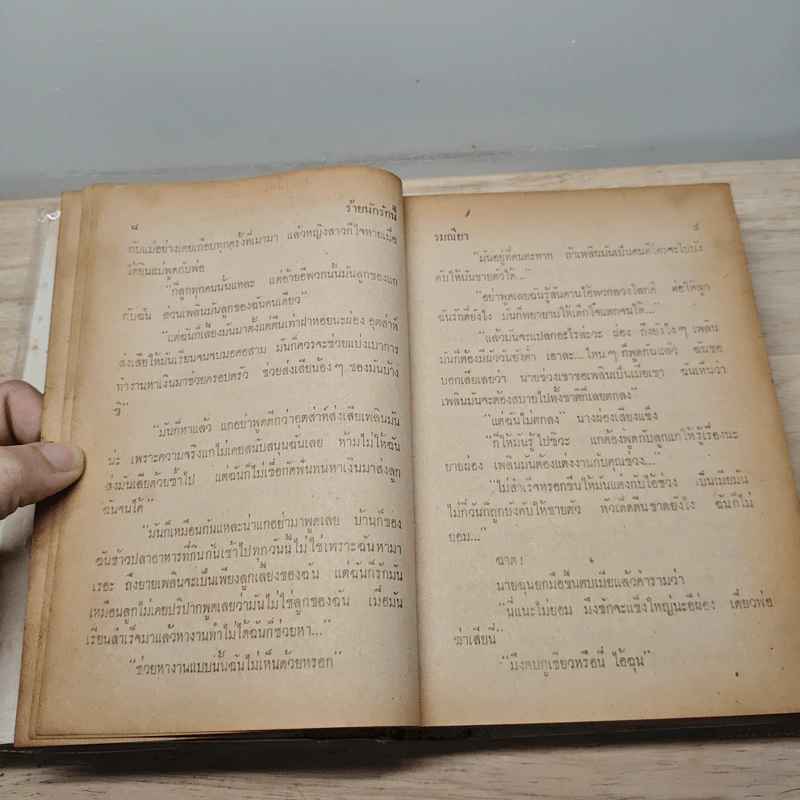 ๘ ร้ายนักรักนี้
กับแม่อย่างเคยเกือบทุกครั้งที่เมามา แล้วหญิงสาวก็ใจหายเมื่อ
ได้ยินแม่พูดกับพ่อ
“ก็ลูกทุกคนนั่นแหละ แต่อ้ายอีพวกนั้นมันลูกของแก
กับฉัน ส่วนเพลินมันลูกของฉันคนเดียว”
“แต่ฉันก็เลี้ยงมันมาตั้งแต่ตีนเท่าฝาหอยนะผ่อง อุตส่าห์
ส่งเสียให้มันเรียนจนจบมอคอสาม มันก็ควรจะช่วยแบ่งเบาการ
ทำงานหาเงินมาช่วยครอบครัว ช่วยส่งเสียน้องๆ ของมันบ้าง
ซิ”
“มันก็หาแล้ว แกอย่าพูดดีกว่าอุตส่าห์ส่งเสียเพลินมัน
น่ะ เพราะความจริงแกไม่เคยสนับสนุนฉันเลย ห้ามไม่ให้ฉัน
ส่งมันเสียด้วยซ้ำไป แต่ฉันก็ไม่เชื่อกัดฟันทนหาเงินมาส่งลูก
ฉันจนได้”
“มันก็เหมือนกันแหละน่าแกอย่ามาพูดเลย บ้านก็ของ
ฉันข้าวปลาอาหารที่กินกันเข้าไปทุกวันนี้ไม่ใช่เพราะฉันหามา
เรอะ ถึงยายเพลินจะเป็นเพียงลูกเลี้ยงของฉัน แต่ฉันก็รักมัน
เหมือนลูกไม่เคยปริปากพูดเลยว่ามันไม่ใช่ลูกของฉัน เมื่อมัน
เรียนสำเร็จมาแล้วหางานทำไม่ได้ฉันก็ช่วยหา...”
“ช่วยหางานแบบนั้นฉันไม่เห็นด้วยหรอก”
รมณียา ๙
“มันอยู่ที่คนตะหาก ถ้าเพลินมันเป็นคนดีใครจะไปบัง
คับให้มันขายตัวได้...”
“อย่าพูดเลยฉันรู้สันดานไอ้พวกลวงโลกดี ต่อให้ลูก
ฉันรักดียังไง มันก็พยายามให้เด็กใจแตกจนได้...”
“แล้วมันจะแปลกอะไรล่ะวะ ผ่อง ถึงยังไงๆ เพลิน
มันก็ต้องมีผัววันยังค่ำ เอาละ...ไหนๆ ก็พูดกันแล้ว ฉันขอ
บอกเสียเลยว่า นายช่วงเขาขอเพลินเป็นเมียเขา ฉันเห็นว่า
เพลินมันจะต้องสบายไปทั้งชาติก็เลยตกลง”
“แต่ฉันไม่ตกลง” นางผ่องเสียงแข็ง
“ก็ให้มันรู้ไปซิวะ แกต้องพูดกับลูกแกให้รู้เรื่องนะ
ยายผ่อง เพลินมันต้องแต่งงานกับคุณช่วง...”
“ไม่สำเร็จหรอกขืนให้มันแต่งกับไอ้ช่วง เป็นเมียมัน
ไม่กี่วันก็ถูกบังคับให้ขายตัว หัวเด็ดตีนขาดยังไง ฉันก็ไม่
ยอม...”
ฉาด!
นายฉุนยกมือขึ้นตบเมียแล้วคำรามว่า
“นี่แน่ะไม่ยอม มึงชักจะแข็งใหญ่นะอีผ่อง เดี๋ยวพ่อ
ฆ่าเสียนี่”
“มึงตบกูเชียวหรือนี่ ไอ้ฉุน”